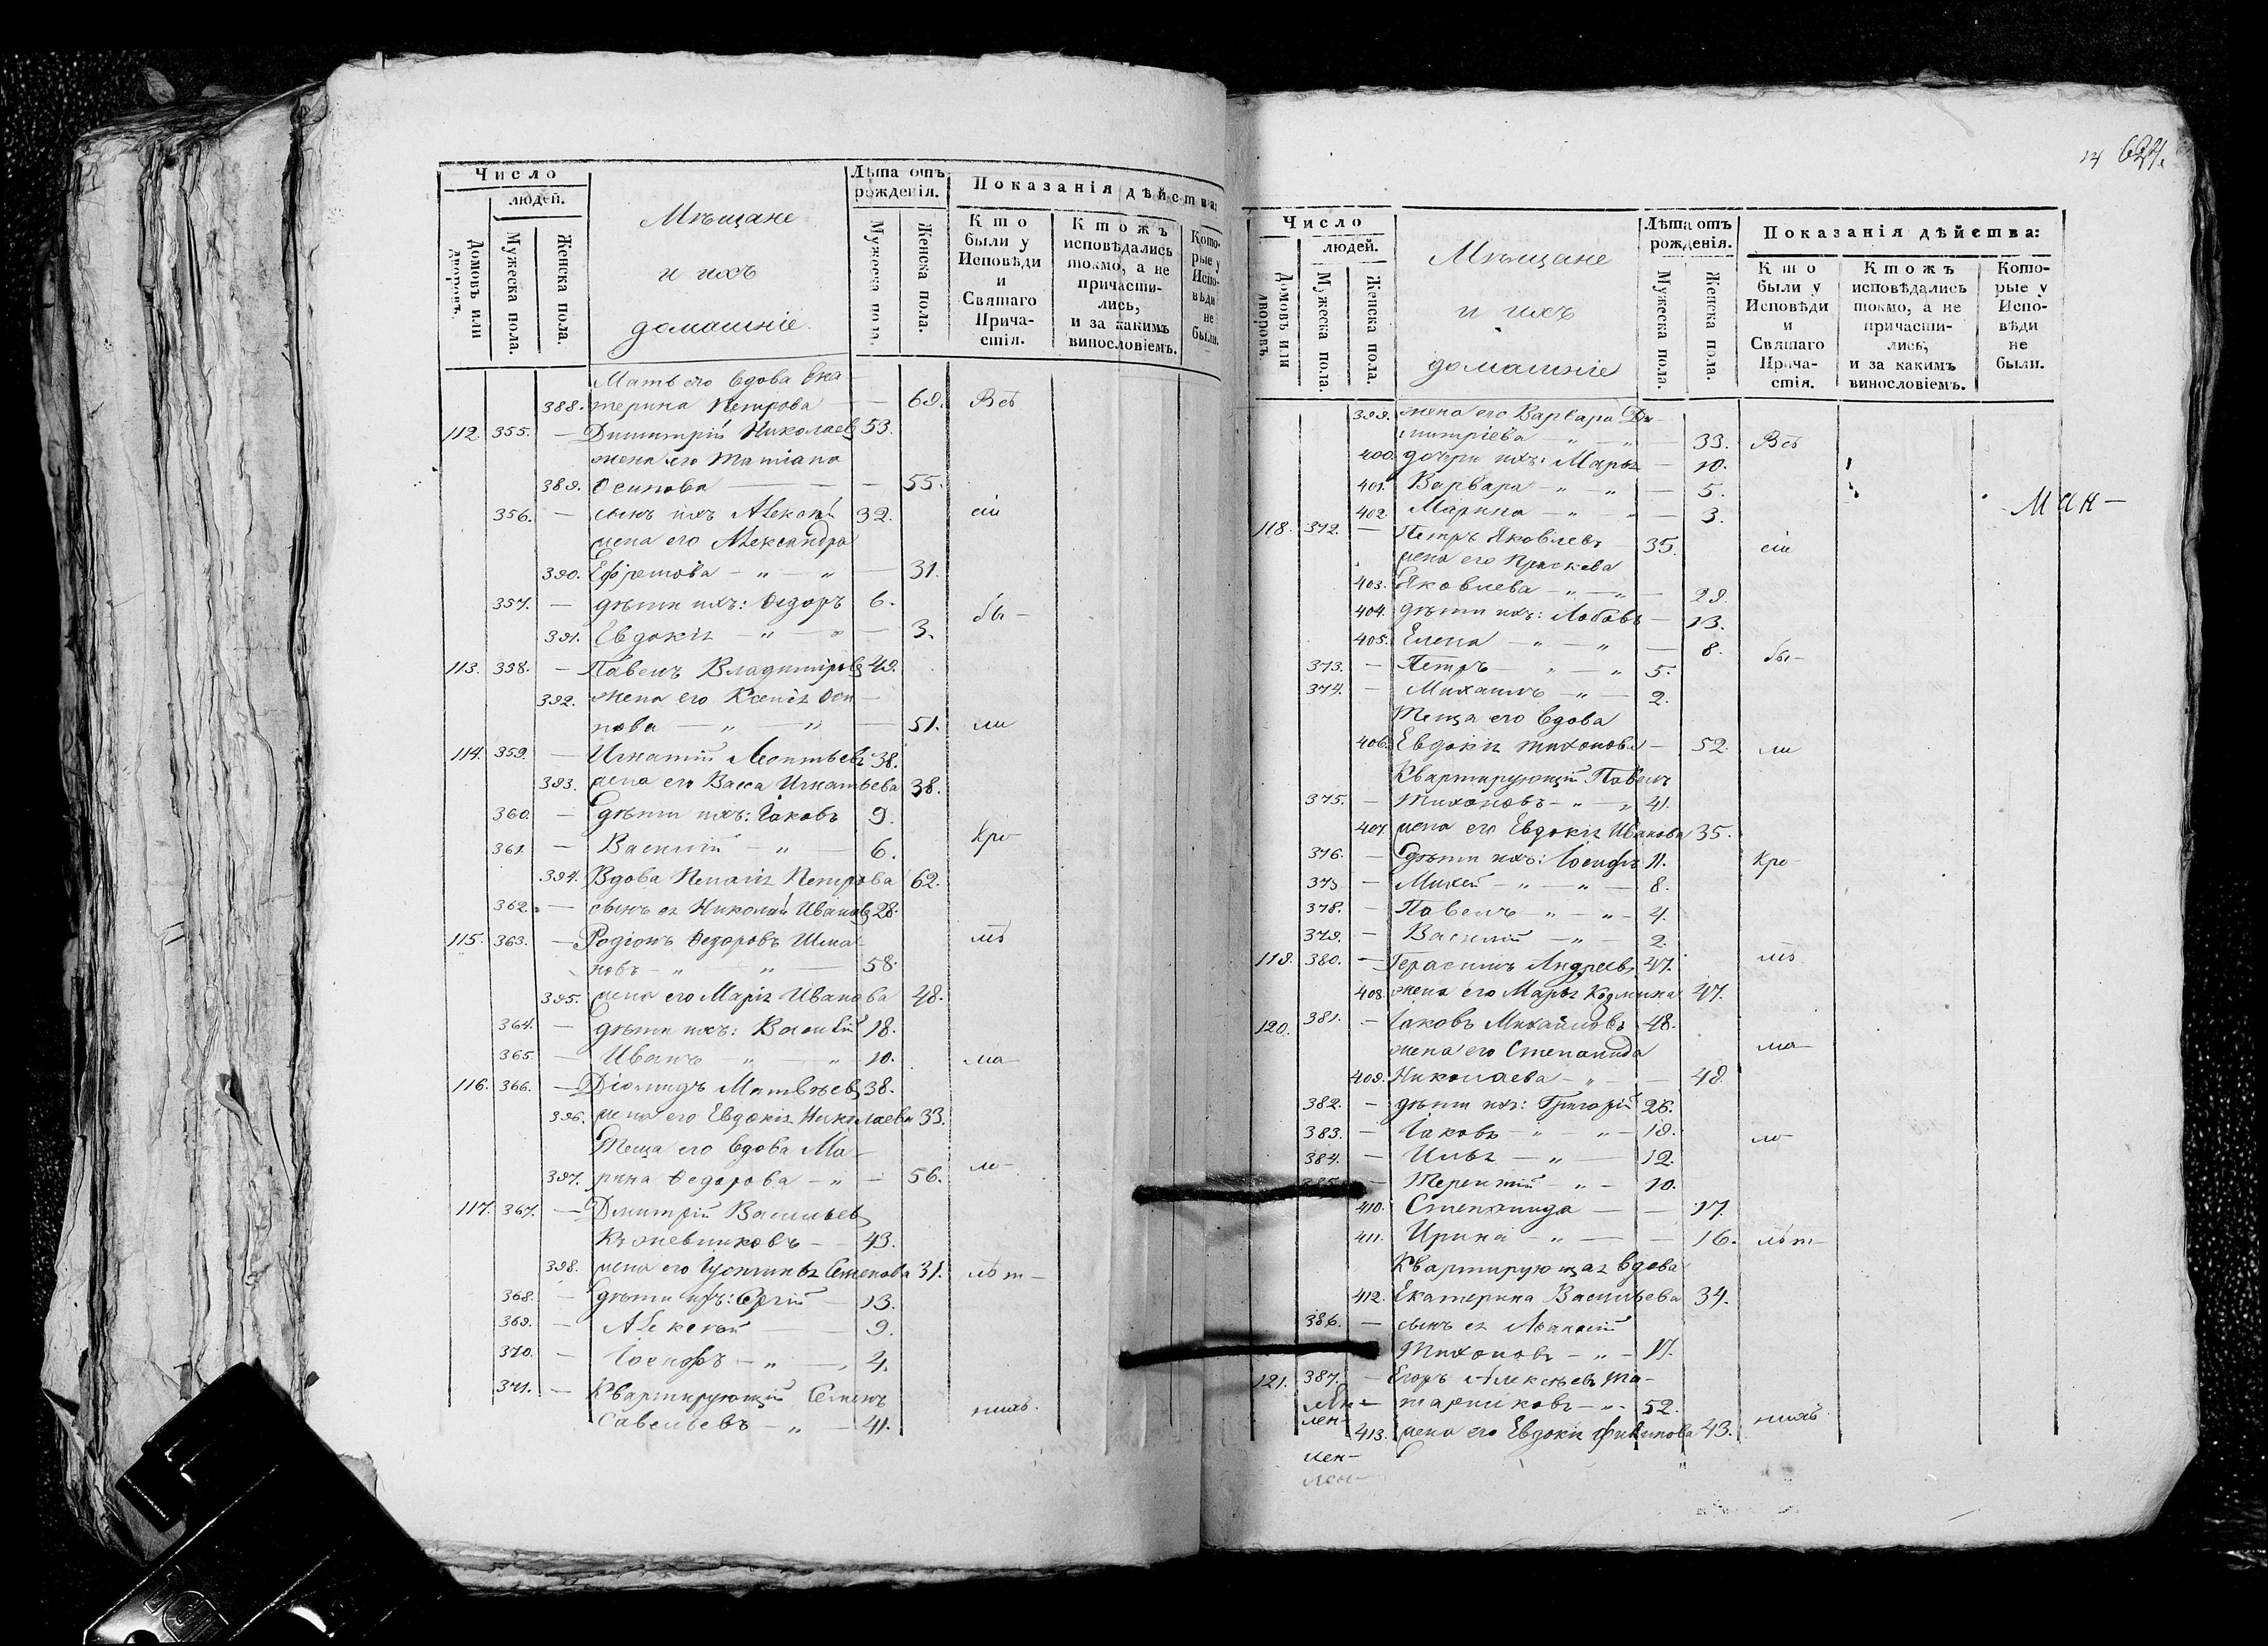 Число
людей.
Домовъ или дворовъ.
Мужеска пола.
Женска пола.
Мѣщане
и ихъ
домашніе
Лѣта отъ рожденія.
Мужеска пола.
Женска пола.
Показанія дѣйства:
Кто были у Исповѣди и Святаго Причастія.
Ктожъ исповѣдались токмо, а не причастились, и за какимъ винословіемъ.
Которые у Исповѣди не были.
Мать его вдова Ека
388. терина Петрова — — 69. Всѣ
112. 355. — Димитрій Николаевъ 53.
жена его Татіана
389. Осипова — — — 55.
356. — сынъ ихъ Алексѣй 32. сіи
жена его Александра
390. Ефремова — " — " — 31.
357. — дѣти ихъ: Ѳедоръ 6. бы —
391. Евдокія — " — " — 3.
113. 358. — Павелъ Владиміровъ 49.
392. жена его Ксенія Оси —
пова — " — " — 51. ли
114. 359. — Игнатій Леонтьевъ 38.
393. жена его Васса Игнатьева 38.
360. — дѣти ихъ: Іаковъ 9. Кро
361. — Василій — " — 6.
394. Вдова Пелагія Петрова 62.
362. — сынъ ея Николай Ивановъ 28.
115. 363. — Родіонъ Ѳедоровъ Шма лѣ
новъ — " — " — 58.
395. жена его Марія Иванова 48.
364. — дѣти ихъ: Василій 18.
365. — Иванъ — " — " 10. ма
116. 366. — Діомидъ Матвѣевъ 38.
396. жена его Евдокія Николаева 33.
Теща его вдова Ма —
397. рина Ѳедорова — " — 56. ло —
117. 367. — Дмитрій Васильевъ
Кожевниковъ — 43.
398. жена его Іустинія Семенова 31. лѣт —
368. — дѣти ихъ: Сергій — 13.
369. — Алексѣй — 9.
370. — Іосифъ — " — 4.
371. — Квартирующій Семенъ
Савельевъ — " — 41. нихъ.
14 624.
Число
людей.
Домовъ или дворовъ.
Мужеска пола.
Женска пола.
Мѣщане
и ихъ
домашніе
Лѣта отъ рожденія.
Мужеска пола.
Женска пола.
Показанія дѣйства:
Кто были у Исповѣди и Святаго Причастія.
Ктожъ исповѣдались токмо, а не причастились, и за какимъ винословіемъ.
Которые у Исповѣди не были.
399. жена его Варвара Ди —
митріева — " — " — 33. Всѣ
400. дочери ихъ: Марѳа — 10.
401. Варвара — " — " — 5.
402. Марина — " — " — 3.
118. 372. — Петръ Яковлевъ 35. сіи
жена его Праскева
403. Яковлева — " — " — 29.
404. дѣти ихъ: Любовь — 13.
405. Елена — " — " — 8. бы —
373. — Петръ — " — " 5.
374. — Михаилъ — " — 2.
Теща его вдова
406. Евдокія Тихонова — 52. ли
Квартирующій Павелъ
375. — Тихоновъ — " — " 41.
407. жена его Евдокія Иванова 35.
376. — дѣти ихъ: Іосифъ 11. Кро —
— Михей — " — " — 8.
378. — Павелъ — " — " — 4.
379. — Василій — " — 2.
119. 380. — Герасимъ Андреевъ 47. лѣ
408. жена его Марѳа Козмина 47.
120. 381. — Іаковъ Михайловъ 48.
жена его Степанида ма
409. Николаева — " — — 49.
382. — дѣти ихъ: Григорій 26.
383. — Іаковъ — " — " — 19. ло —
384. — Илья — " — 12.
385. — Терентій — " — 10.
410. Степанида — — 17.
411. Ирина — " — — 16. лѣт —
Квартирующая вдова
412. Екатерина Васильева 34.
386. — сынъ ея
Тихоновъ — " — 17.
121. 387. — Егоръ Алексѣевъ Та —
тарниковъ — " — 52.
413. жена его Евдокія Филипова 43. нихъ.
лен —
лен —
лен —